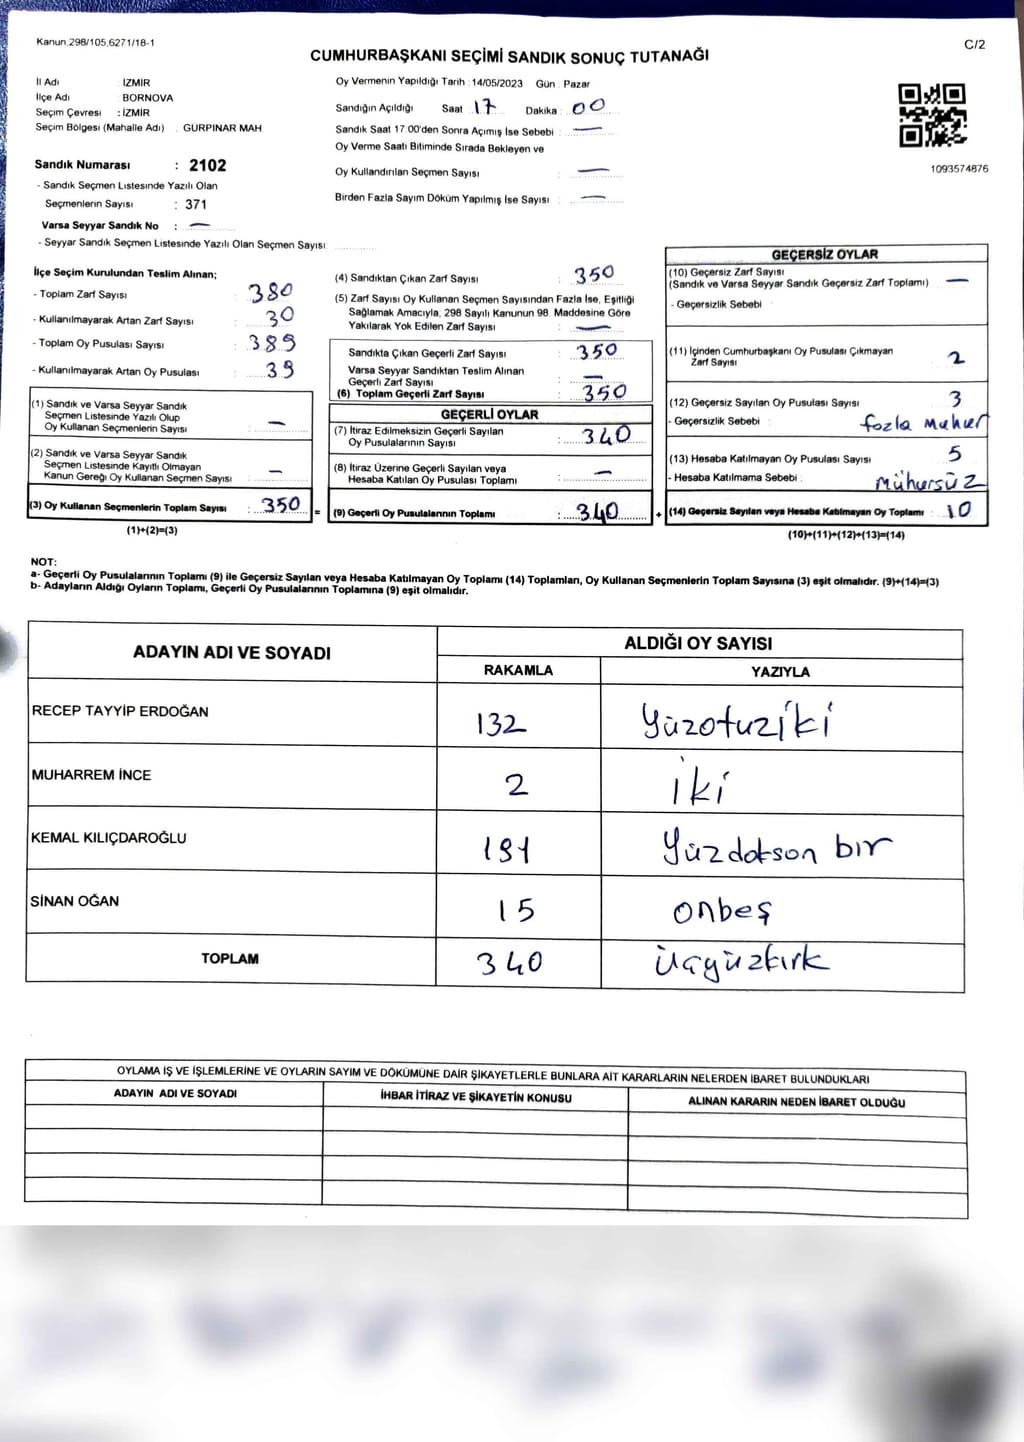 Kanun.298/105,6271/18-1
C/2
CUMHURBAŞKANI SEÇİMİ SANDIK SONUÇ TUTANAĞI
İl Adı : İZMİR
İlçe Adı : BORNOVA
Seçim Çevresi : İZMİR
Seçim Bölgesi (Mahalle Adı) : GÜRPINAR MAH
Sandık Numarası : 2102
- Sandık Seçmen Listesinde Yazılı Olan
Seçmenlerin Sayısı : 371
Varsa Seyyar Sandık No : —
- Seyyar Sandık Seçmen Listesinde Yazılı Olan Seçmen Sayısı :
Oy Vermenin Yapıldığı Tarih : 14/05/2023 Gün : Pazar
Sandığın Açıldığı Saat : 17 Dakika : 00
Sandık Saat 17:00'den Sonra Açımış İse Sebebi : —
Oy Verme Saati Bitiminde Sırada Bekleyen ve
Oy Kullandırılan Seçmen Sayısı : —
Birden Fazla Sayım Döküm Yapılmış İse Sayısı : —
1093574876
İlçe Seçim Kurulundan Teslim Alınan;
- Toplam Zarf Sayısı : 380
- Kullanılmayarak Artan Zarf Sayısı : 30
- Toplam Oy Pusulası Sayısı : 389
- Kullanılmayarak Artan Oy Pusulası : 39
(1) Sandık ve Varsa Seyyar Sandık
Seçmen Listesinde Yazılı Olup
Oy Kullanan Seçmenlerin Sayısı : —
(2) Sandık ve Varsa Seyyar Sandık
Seçmen Listesinde Kayıtlı Olmayan
Kanun Gereği Oy Kullanan Seçmen Sayısı : —
(3) Oy Kullanan Seçmenlerin Toplam Sayısı : 350 =
(1)+(2)=(3)
(4) Sandıktan Çıkan Zarf Sayısı : 350
(5) Zarf Sayısı Oy Kullanan Seçmen Sayısından Fazla İse, Eşitliği
Sağlamak Amacıyla, 298 Sayılı Kanunun 98. Maddesine Göre
Yakılarak Yok Edilen Zarf Sayısı : —
Sandıkta Çıkan Geçerli Zarf Sayısı : 350
Varsa Seyyar Sandıktan Teslim Alınan
Geçerli Zarf Sayısı : —
(6) Toplam Geçerli Zarf Sayısı : 350
GEÇERLİ OYLAR
(7) İtiraz Edilmeksizin Geçerli Sayılan
Oy Pusulalarının Sayısı : 340
(8) İtiraz Üzerine Geçerli Sayılan veya
Hesaba Katılan Oy Pusulası Toplamı : —
(9) Geçerli Oy Pusulalarının Toplamı : 340 +
GEÇERSİZ OYLAR
(10) Geçersiz Zarf Sayısı
(Sandık ve Varsa Seyyar Sandık Geçersiz Zarf Toplamı) : —
- Geçersizlik Sebebi :
(11) İçinden Cumhurbaşkanı Oy Pusulası Çıkmayan
Zarf Sayısı : 2
(12) Geçersiz Sayılan Oy Pusulası Sayısı : 3
- Geçersizlik Sebebi : fazla Muhur
(13) Hesaba Katılmayan Oy Pusulası Sayısı : 5
- Hesaba Katılmama Sebebi : Mühürsüz
(14) Geçersiz Sayılan veya Hesaba Katılmayan Oy Toplamı : 10
(10)+(11)+(12)+(13)=(14)
NOT:
a- Geçerli Oy Pusulalarının Toplamı (9) ile Geçersiz Sayılan veya Hesaba Katılmayan Oy Toplamı (14) Toplamları, Oy Kullanan Seçmenlerin Toplam Sayısına (3) eşit olmalıdır. (9)+(14)=(3)
b- Adayların Aldığı Oyların Toplamı, Geçerli Oy Pusulalarının Toplamına (9) eşit olmalıdır.
ADAYIN ADI VE SOYADI ALDIĞI OY SAYISI
RAKAMLA YAZIYLA
RECEP TAYYİP ERDOĞAN 132 Yüzotuziki
MUHARREM İNCE 2 iki
KEMAL KILIÇDAROĞLU 191 Yüzdokson bır
SİNAN OĞAN 15 onbeş
TOPLAM 340 üçyüzkırk
OYLAMA İŞ VE İŞLEMLERİNE VE OYLARIN SAYIM VE DÖKÜMÜNE DAİR ŞİKAYETLERLE BUNLARA AİT KARARLARIN NELERDEN İBARET BULUNDUKLARI
ADAYIN ADI VE SOYADI İHBAR İTİRAZ VE ŞİKAYETİN KONUSU ALINAN KARARIN NEDEN İBARET OLDUĞU